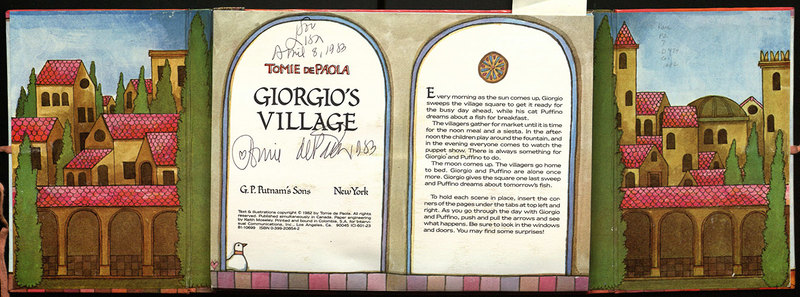 for
Lisa
April 8, 1983
TOMIE DEPAOLA
GIORGIO'S
VILLAGE
Tomie dePaola 1983
G. P. Putnam's Sons New York
Text & illustrations copyright © 1982 by Tomie de Paola. All rights
reserved. Published simultaneously in Canada. Paper engineering
by Keith Moseley. Printed and bound in Colombia, S.A. for Interval
Communications, Inc., Los Angeles, Ca. 90045
Every morning as the sun comes up, Giorgio
sweeps the village square to get it ready for
the busy day ahead, while his cat Puffino
dreams about a fish for breakfast.
The villagers gather for market until it is time
for the noon meal and a siesta. In the after-
noon the children play around the fountain, and
in the evening everyone comes to watch the
puppet show. There is always something for
Giorgio and Puffino to do.
The moon comes up. The villagers go home
to bed. Giorgio and Puffino are alone once
more. Giorgio gives the square one last sweep
and Puffino dreams about tomorrow's fish.
To hold each scene in place, insert the cor-
ners of the pages under the tabs at top left and
right. As you go through the day with Giorgio
and Puffino, push and pull the arrows and see
what happens. Be sure to look in the windows
and doors. You may find some surprises!